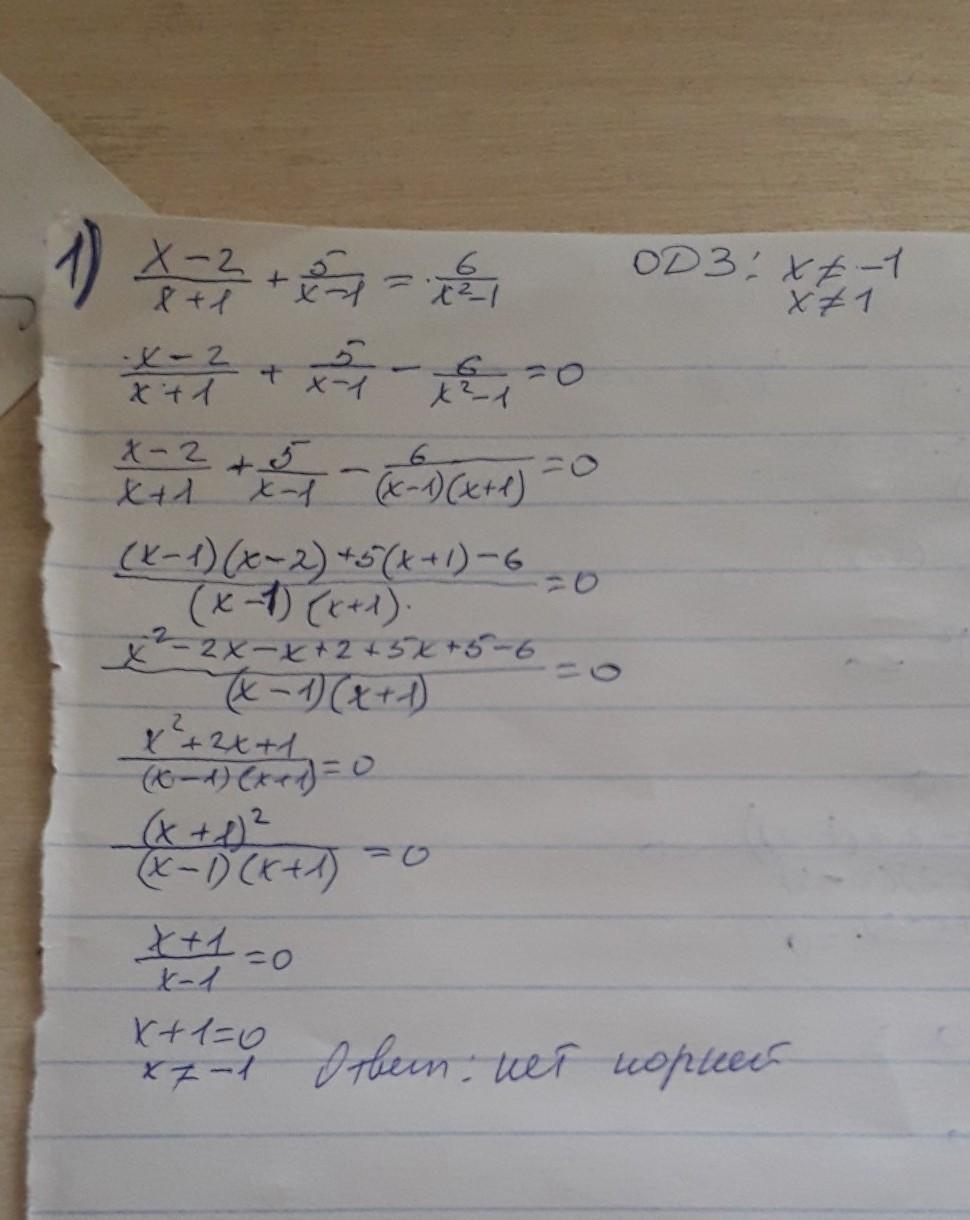 1) (x-2)/(x+1) + 5/(x-1) = 6/(x²-1) ОДЗ: x ≠ -1
x ≠ 1
(x-2)/(x+1) + 5/(x-1) - 6/(x²-1) = 0
(x-2)/(x+1) + 5/(x-1) - 6/((x-1)(x+1)) = 0
((x-1)(x-2)+5(x+1)-6)/((x-1)(x+1)) = 0
(x²-2x-x+2+5x+5-6)/((x-1)(x+1)) = 0
(x²+2x+1)/((x-1)(x+1)) = 0
(x+1)²/((x-1)(x+1)) = 0
(x+1)/(x-1) = 0
x+1=0
x ≠ -1 Ответ: нет корней